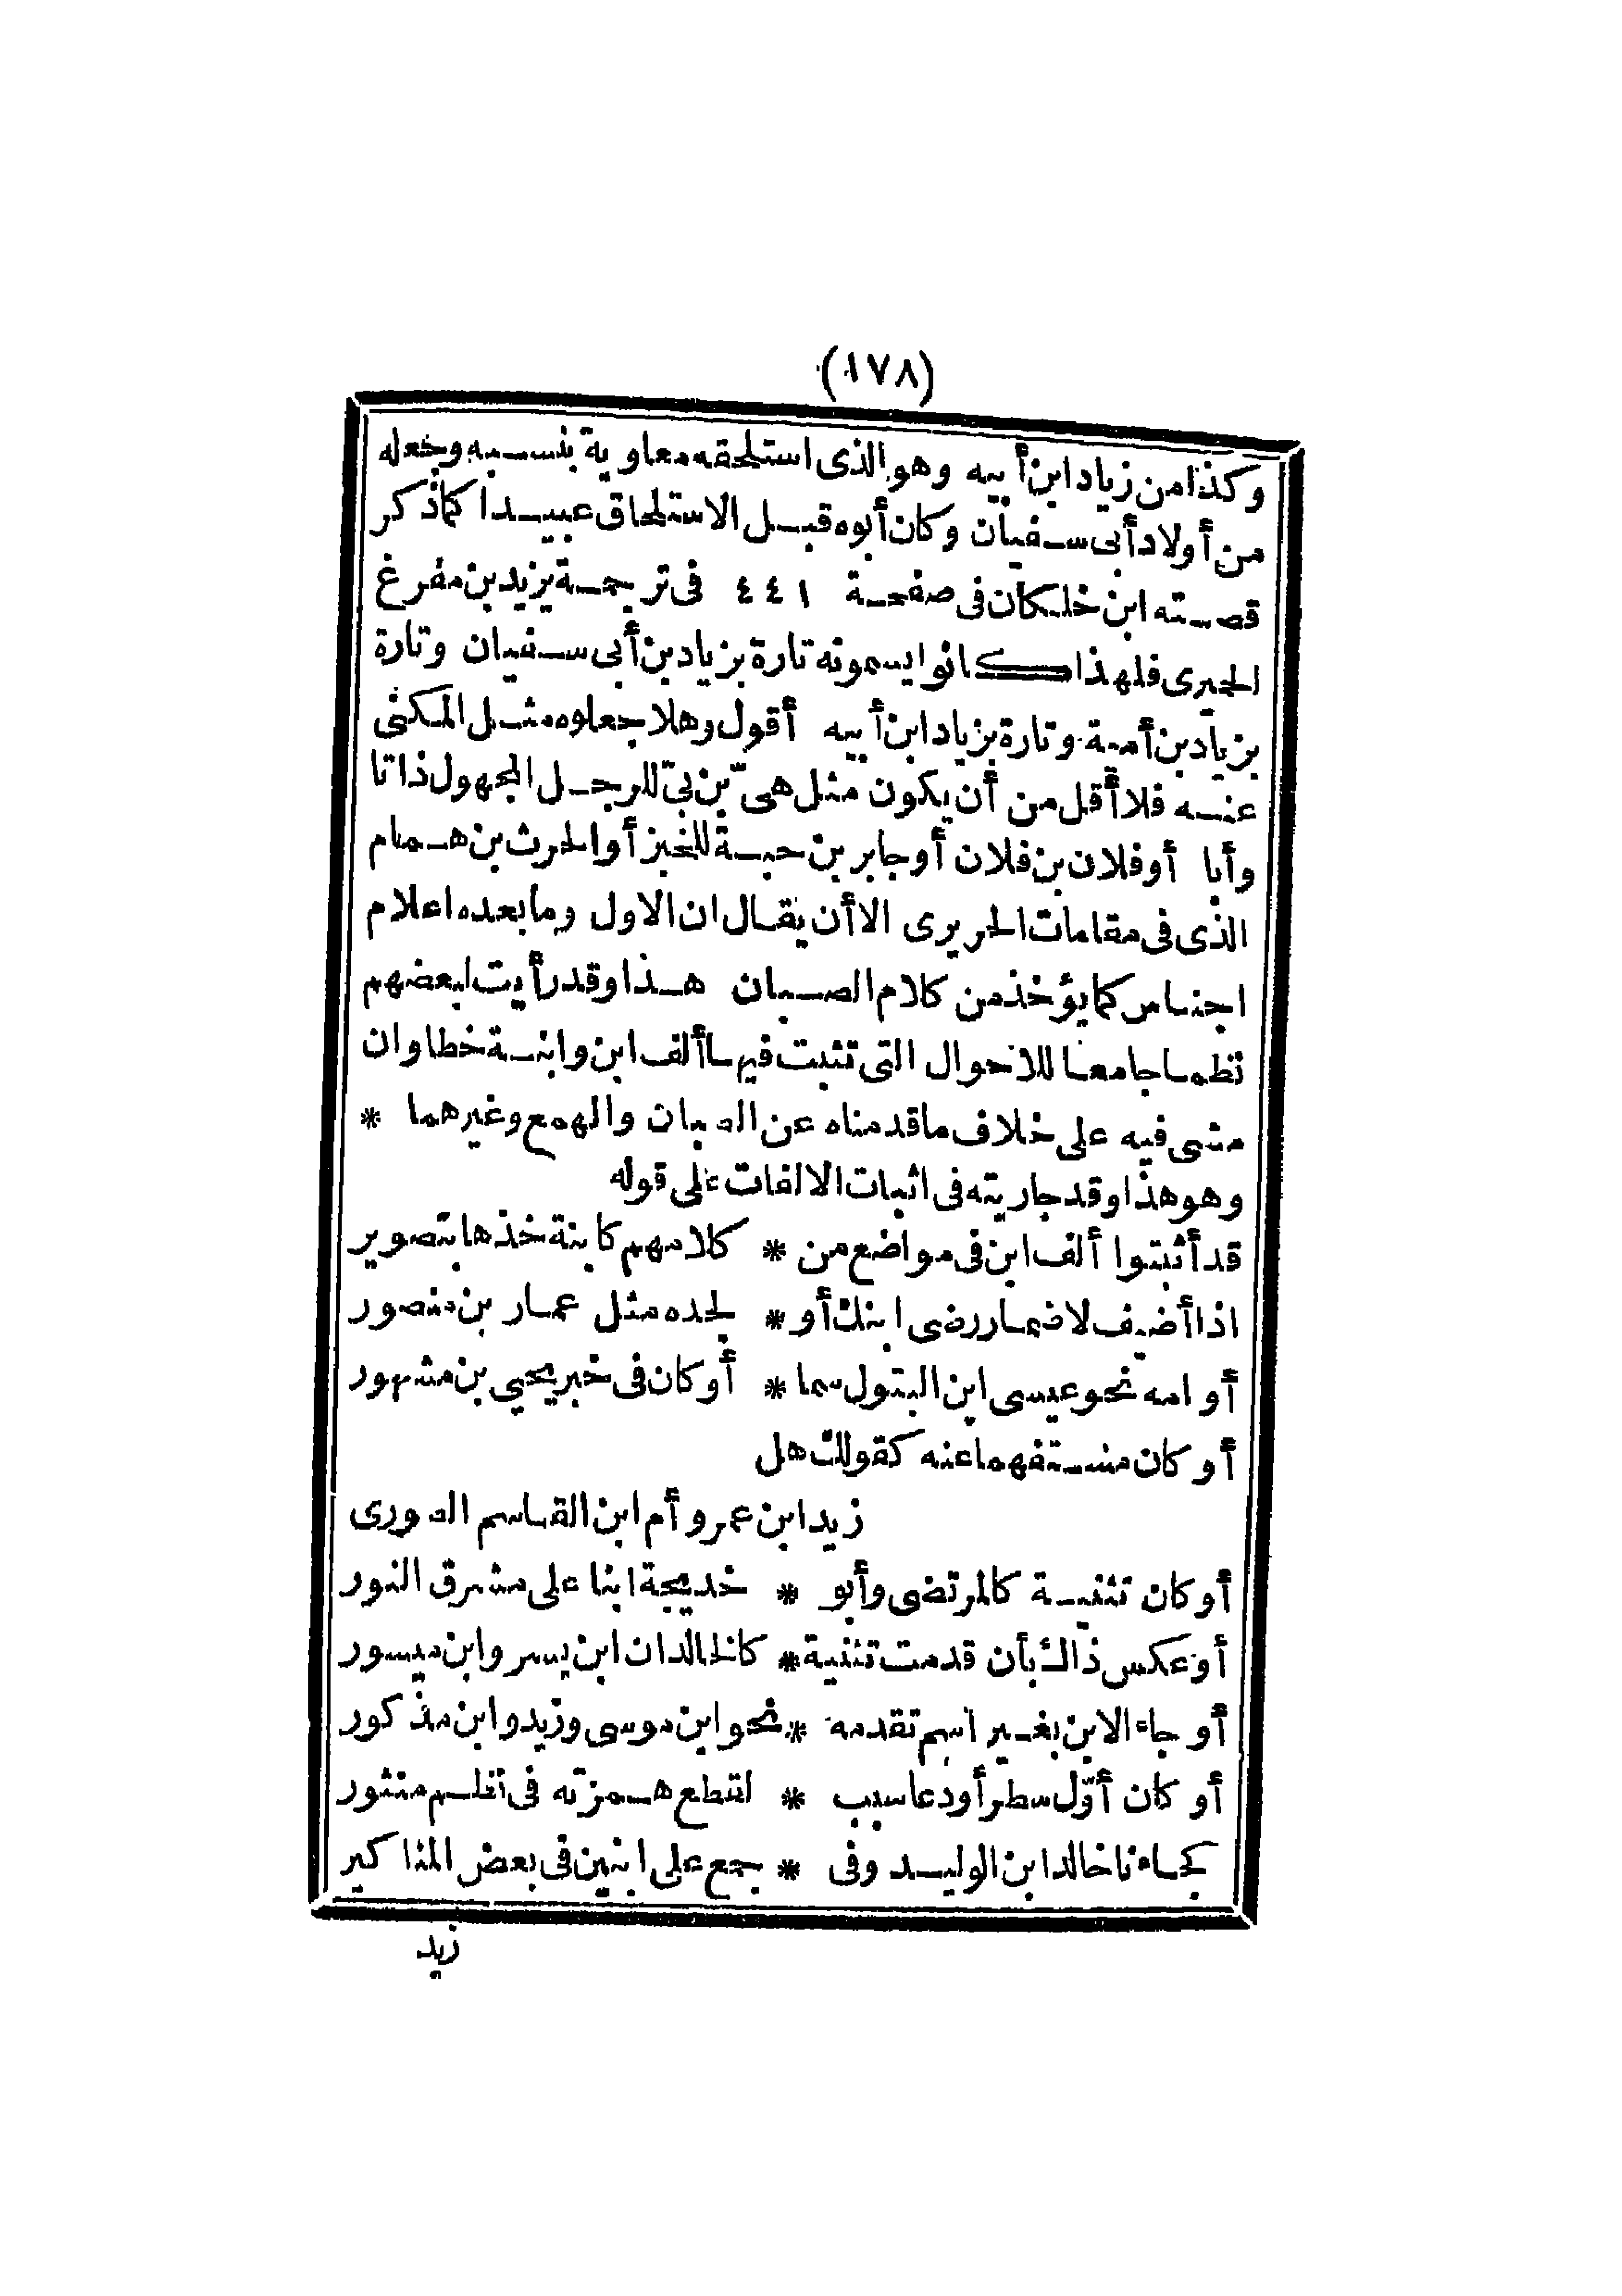 (١٧٨)
وكذا من زياد ابن أبيه وهو الذى استلحقه معاوية بنسبه وجعله
من أولاد أبى سفيان وكان أبوه قبل الاستلحاق عبيدا كما ذكر
قصته ابن خلكان فى صفحة ٤٤١ فى ترجمة يزيد بن مفرغ
الحميرى فلهذا كانوا يسمونه تارة بزياد بن أبى سفيان وتارة
بزياد بن أمية وتارة بزياد ابن أبيه أقول وهلا جعلوه مثل المكنى
عنه فلا أقل من أن يكون مثل هىّ بن بىّ للرجل المجهول ذاتا
وأبا أو فلان بن فلان أو جابر بن حبة للخبز أو الحرث بن همام
الذى فى مقامات الحريرى الا أن يقال ان الاول وما بعده اعلام
اجناس كما يؤخذ من كلام الصبان هذا وقد رأيت لبعضهم
نظما جامعا للاحوال التى تثبت فيها ألف ابن وابنة خطا وان
مشى فيه على خلاف ما قدمناه عن الصبان والهمع وغيرهما *
وهو هذا وقد جاريته فى اثبات الالفات على قوله
قد أثبتوا ألف ابن فى مواضع من * كلامهم كابنة خذها بتصوير
اذا أضيف لاضمار رضى ابنك أو * لجده مثل عمار بن منصور
أو امه نحو عيسى ابن البتول سما * أو كان فى خبر يحيى بن مشهور
أو كان مستفهما عنه كقولك هل
زيد ابن عمرو أم ابن القاسم الصورى
أو كان تثنية كالمرتضى وأبو * خديجة ابنا على مشرق النور
أو عكس ذاك بأن قدمت تثنية * كالخالدان ابن يسر وابن ميسور
أو جاء الابن بغير اسم تقدمه * نحو ابن موسى وزيد وابن مذكور
أو كان أوّل سطر أو دعا سبب * لقطع همزته فى نظم منثور
كجاءنا خالد ابن الوليد وفى * جمع على ابنين فى بعض المذاكير
زيد